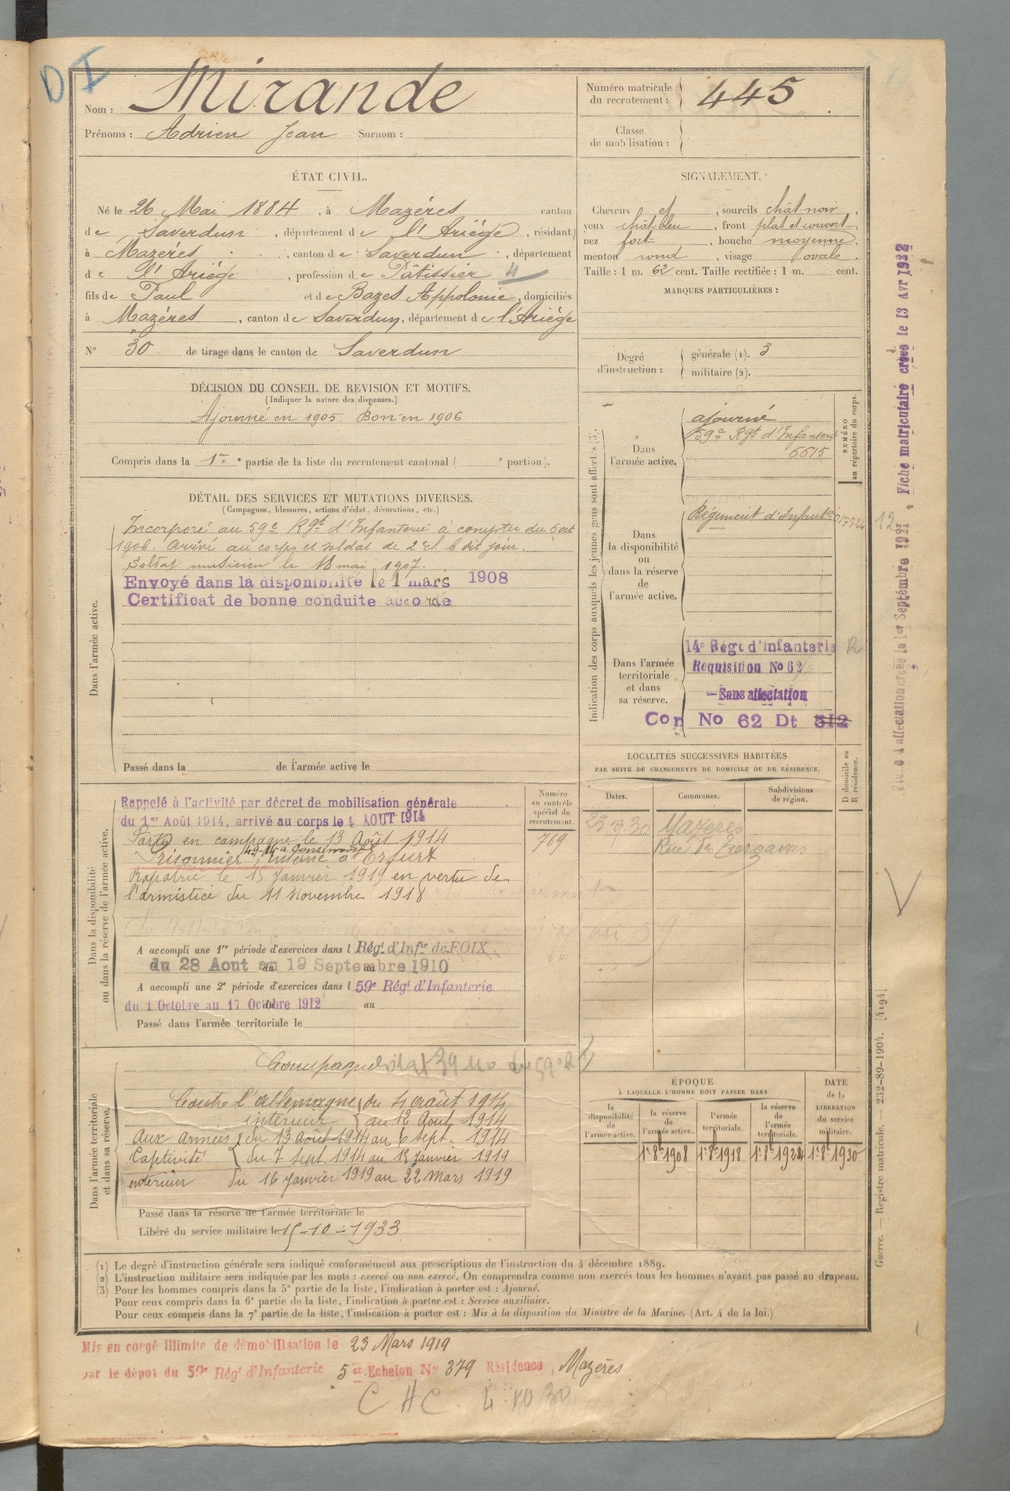 D I
Nom : Mirande
Prénoms : Adrien Jean Surnom :
Numéro matricule
du recrutement : 445
Classe
de mobilisation :
ÉTAT CIVIL.
Né le 26 Mai 1884, à Mazéres canton
de Saverdun, département de l'Ariége, résidant
à Mazéres, canton de Saverdun, département
de l'Ariége, profession de Pâtissier 4
fils de Paul et de Bazes Appolonie, domiciliés
à Mazéres, canton de Saverdun, département de l'Ariége
N° 30 de tirage dans le canton de Saverdun
SIGNALEMENT.
Cheveux et, sourcils chât noir,
yeux chât bleu, front plat et couvert,
nez fort, bouche moyenne,
menton rond, visage ovale.
Taille : 1 m. 62 cent. Taille rectifiée : 1 m. cent.
MARQUES PARTICULIÈRES :
Degré
d'instruction :
générale (1). 3
militaire (2).
DÉCISION DU CONSEIL DE REVISION ET MOTIFS.
(Indiquer la nature des dispenses.)
Ajourné en 1905. Bon en 1906
Compris dans la 1re partie de la liste du recrutement cantonal ( e portion).
DÉTAIL DES SERVICES ET MUTATIONS DIVERSES.
(Campagnes, blessures, actions d'éclat, décorations, etc.)
Dans l'armée active.
Incorporé au 59e Rgt d'Infanterie à compter du 6 oct
1906. Arrivé au corps et soldat de 2e cl. le dit jour.
Soldat musicien le 18 mai 1907.
Envoyé dans la disponibilité le 1 mars 1908
Certificat de bonne conduite accordé
Passé dans la de l'armée active le
Indication des corps auxquels les jeunes gens sont affectés (3).
NUMÉRO
au répertoire du corps.
Dans
l'armée active.
ajourné
59e Rgt d'Infanterie
6615
Dans
la disponibilité
ou
dans la réserve
de
l'armée active.
Régiment d'Infantie
Dans l'armée
territoriale
et dans
sa réserve.
14e Régt d'infanterie R
Réquisition No 62
Sans affectation
Con No 62 Dt 312
LOCALITÉS SUCCESSIVES HABITÉES
PAR SUITE DE CHANGEMENTS DE DOMICILE OU DE RÉSIDENCE.
D domicile ou
R résidence.
Dates. Communes. Subdivisions
de région.
Mazeres
Rue des
Dans la disponibilité
ou dans la réserve de l'armée active.
Numéro
au contrôle
spécial du
recrutement.
769
Rappelé à l'activité par décret de mobilisation générale
du 1er Août 1914, arrivé au corps le 4 AOUT 1914
Parti en campagne le 13 Août 1914
Prisonnier Interné à Erfurt
Rapatrié le 15 Janvier 1919 en vertu de
l'armistice du 11 Novembre 1918
A accompli une 1re période d'exercices dans l Rég. d'Infie de FOIX
du 28 Aout au 19 Septembre 1910
A accompli une 2e période d'exercices dans l 59e Régt d'Infanterie
du 1 Octobre au 17 Octobre 1912 au
Passé dans l'armée territoriale le
Dans l'armée territoriale
et dans sa réserve.
Campagne
Contre l'allemagne du 4 août 1914
intérieur au 12 Août 1914
Aux armées du 13 Août 1914 au 6 sept. 1914
Captivité du 7 sept. 1914 au 15 janvier 1919
intérieur du 16 janvier 1919 au 22 Mars 1919
Passé dans la réserve de l'armée territoriale le
Libéré du service militaire le 15-10-1933
ÉPOQUE
À LAQUELLE L'HOMME DOIT PASSER DANS
DATE
de la
LIBÉRATION
du service
militaire.
la
disponibilité
de
l'armée active.
la réserve
de
l'armée active.
l'armée
territoriale.
la réserve
de
l'armée
territoriale.
1r 8b 1908 1r 8b 1918 1r 8b 1924 1r 8b 1930
(1) Le degré d'instruction générale sera indiqué conformément aux prescriptions de l'instruction du 4 décembre 1889.
(2) L'instruction militaire sera indiquée par les mots : exercé ou non exercé. On comprendra comme non exercés tous les hommes n'ayant pas passé au drapeau.
(3) Pour les hommes compris dans la 5e partie de la liste, l'indication à porter est : Ajourné.
Pour ceux compris dans la 6e partie de la liste, l'indication à porter est : Service auxiliaire.
Pour ceux compris dans la 7e partie de la liste, l'indication à porter est : Mis à la disposition du Ministre de la Marine. (Art. 4 de la loi.)
Mis en congé illimité de démobilisation le 23 Mars 1919
par le dépôt du 59e Régt d'Infanterie 5 er Echelon No 379 Résidence, Mazères
C H C 4 10 30
Fiche matriculaire créée le 13 Avr 1922
d'affectation créée le 1er Septembre 1921
Guerre. — Registre matricule. 232-89-1904. [4194]